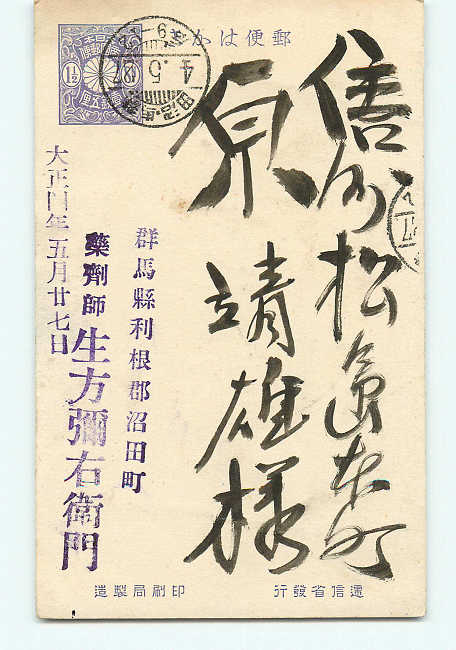 郵便はかき
1½
信州松島本町
原 靖雄様
群馬縣利根郡沼田町
藥劑師 生方彌右衛門
大正四年五月廿七日
4.5.27
遞信省發行
印刷局製造